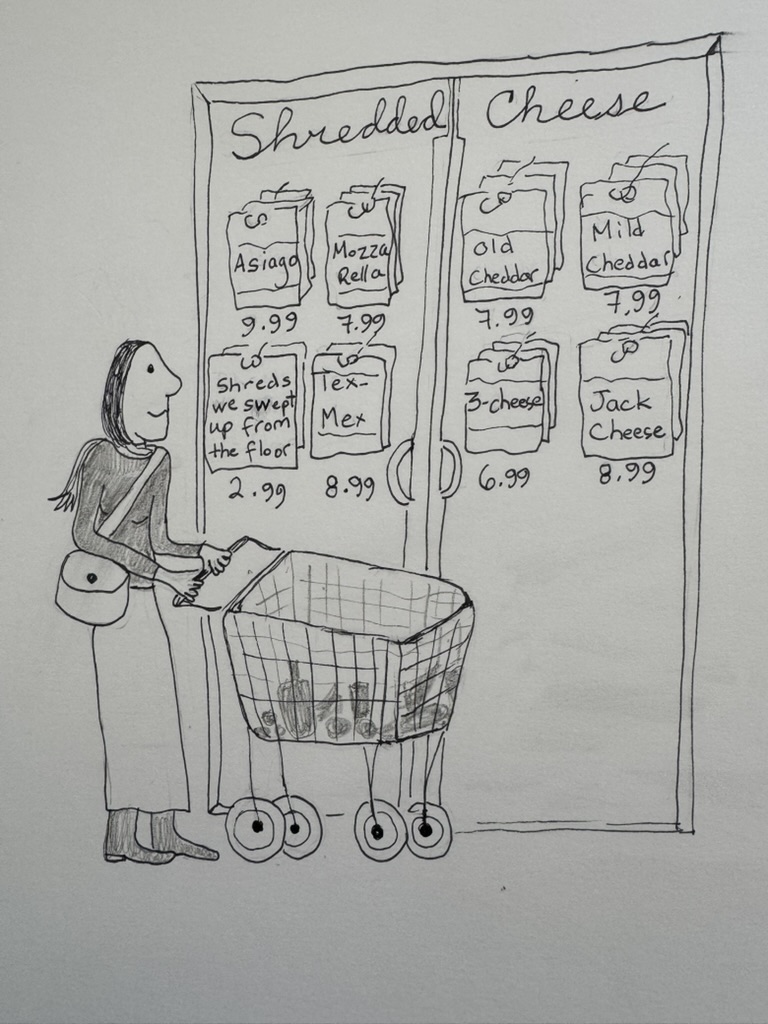 Shredded Cheese
Asiago
9.99
Mozza
Rella
7.99
Old
Cheddar
7.99
Mild
Cheddar
7,99
Shreds
we swept
up from
the floor
2.99
Tex-
Mex
8.99
3-cheese
6.99
Jack
Cheese
8.99